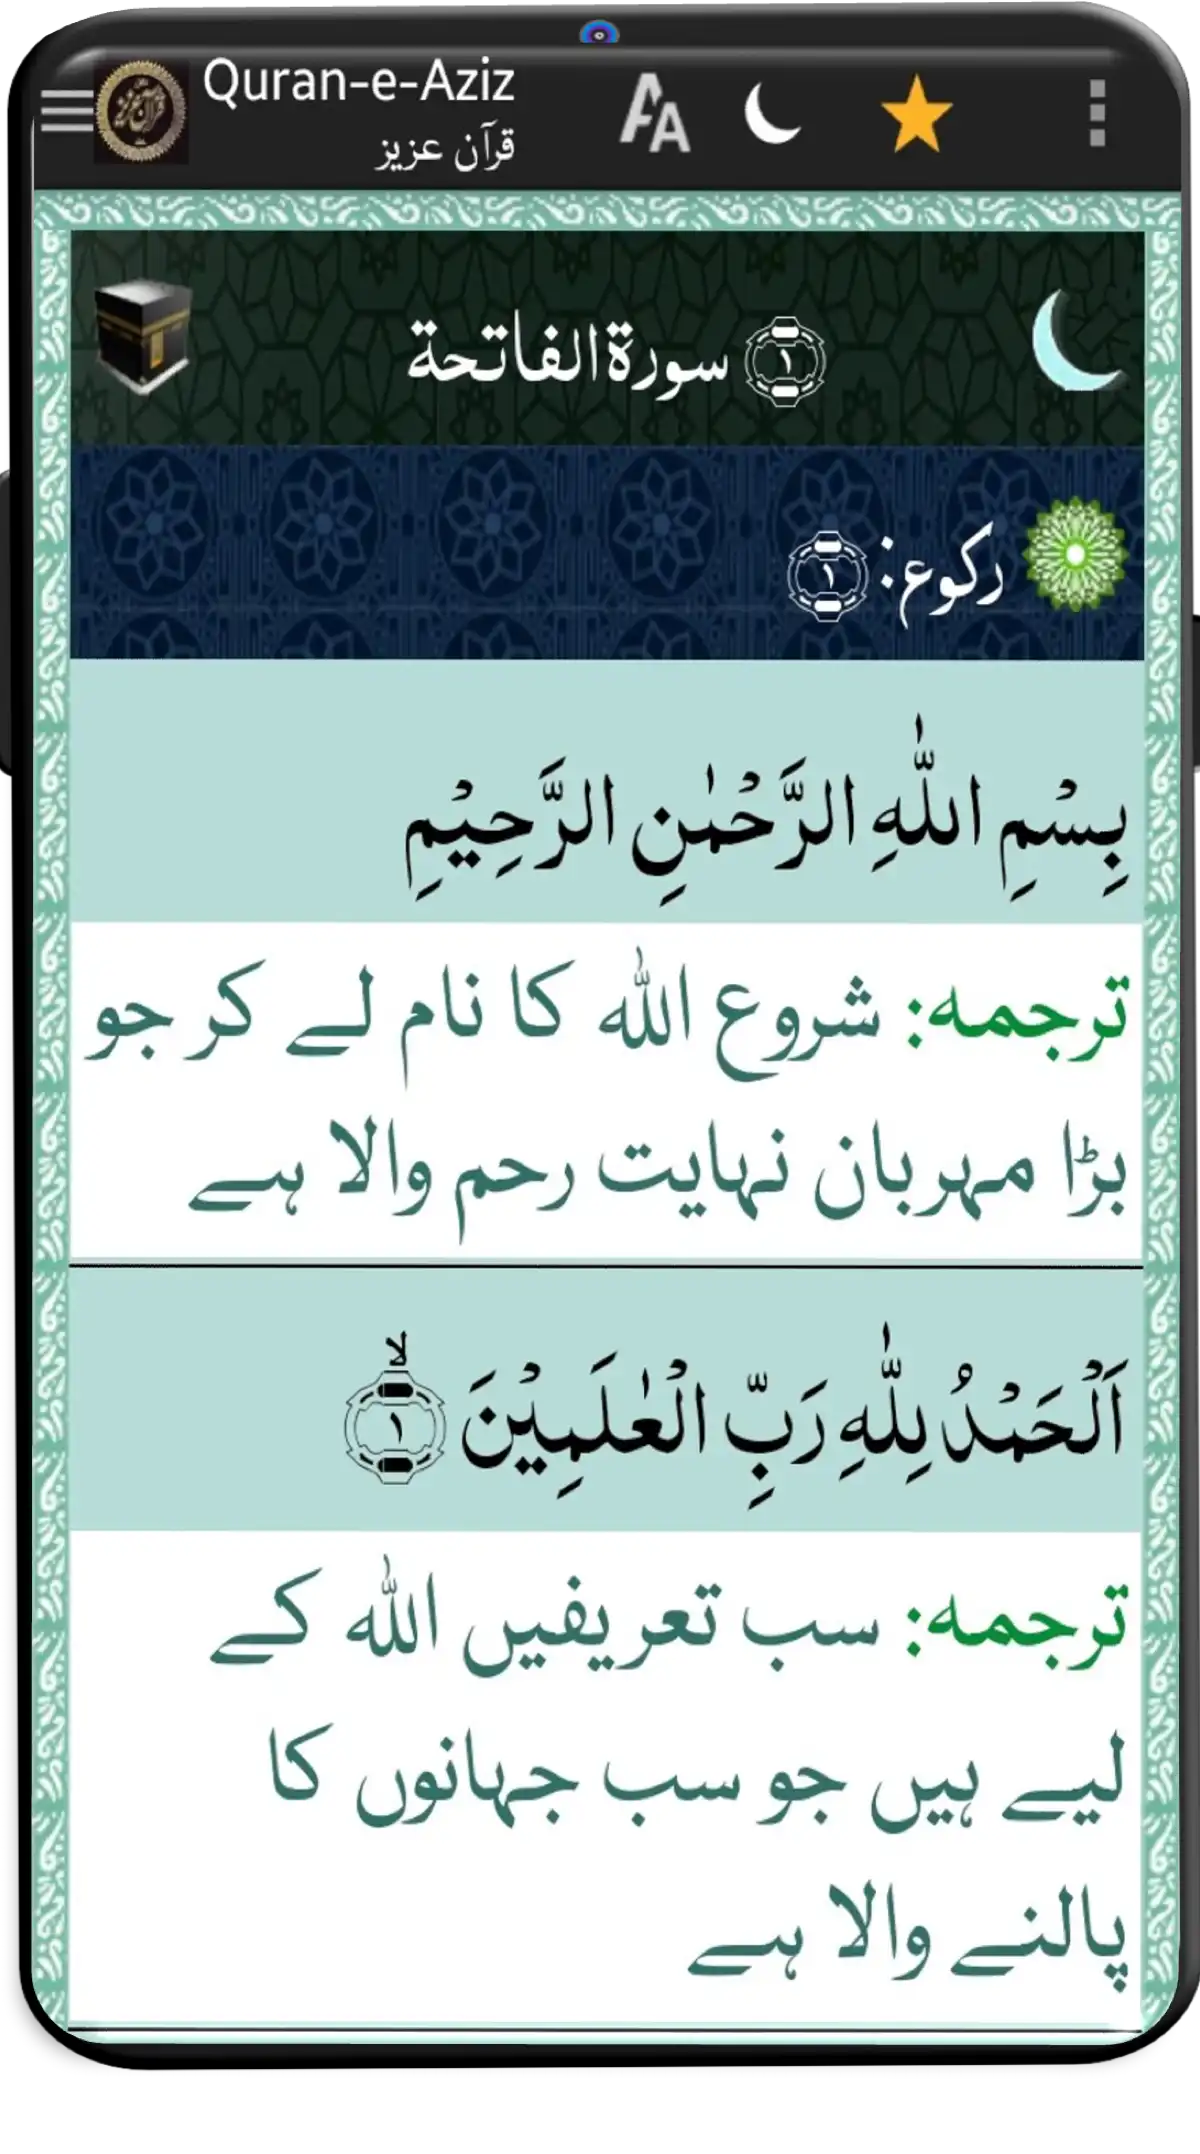 Quran-e-Aziz
قرآن عزیز
۱ سورۃ الفاتحة
رکوع: ۱
بِسْمِ اللّٰهِ الرَّحْمٰنِ الرَّحِیْمِ
ترجمہ: شروع اللہ کا نام لے کر جو
بڑا مہربان نہایت رحم والا ہے
اَلْحَمْدُ لِلّٰهِ رَبِّ الْعٰلَمِیْنَ ۙ۱
ترجمہ: سب تعریفیں اللہ کے
لیے ہیں جو سب جہانوں کا
پالنے والا ہے